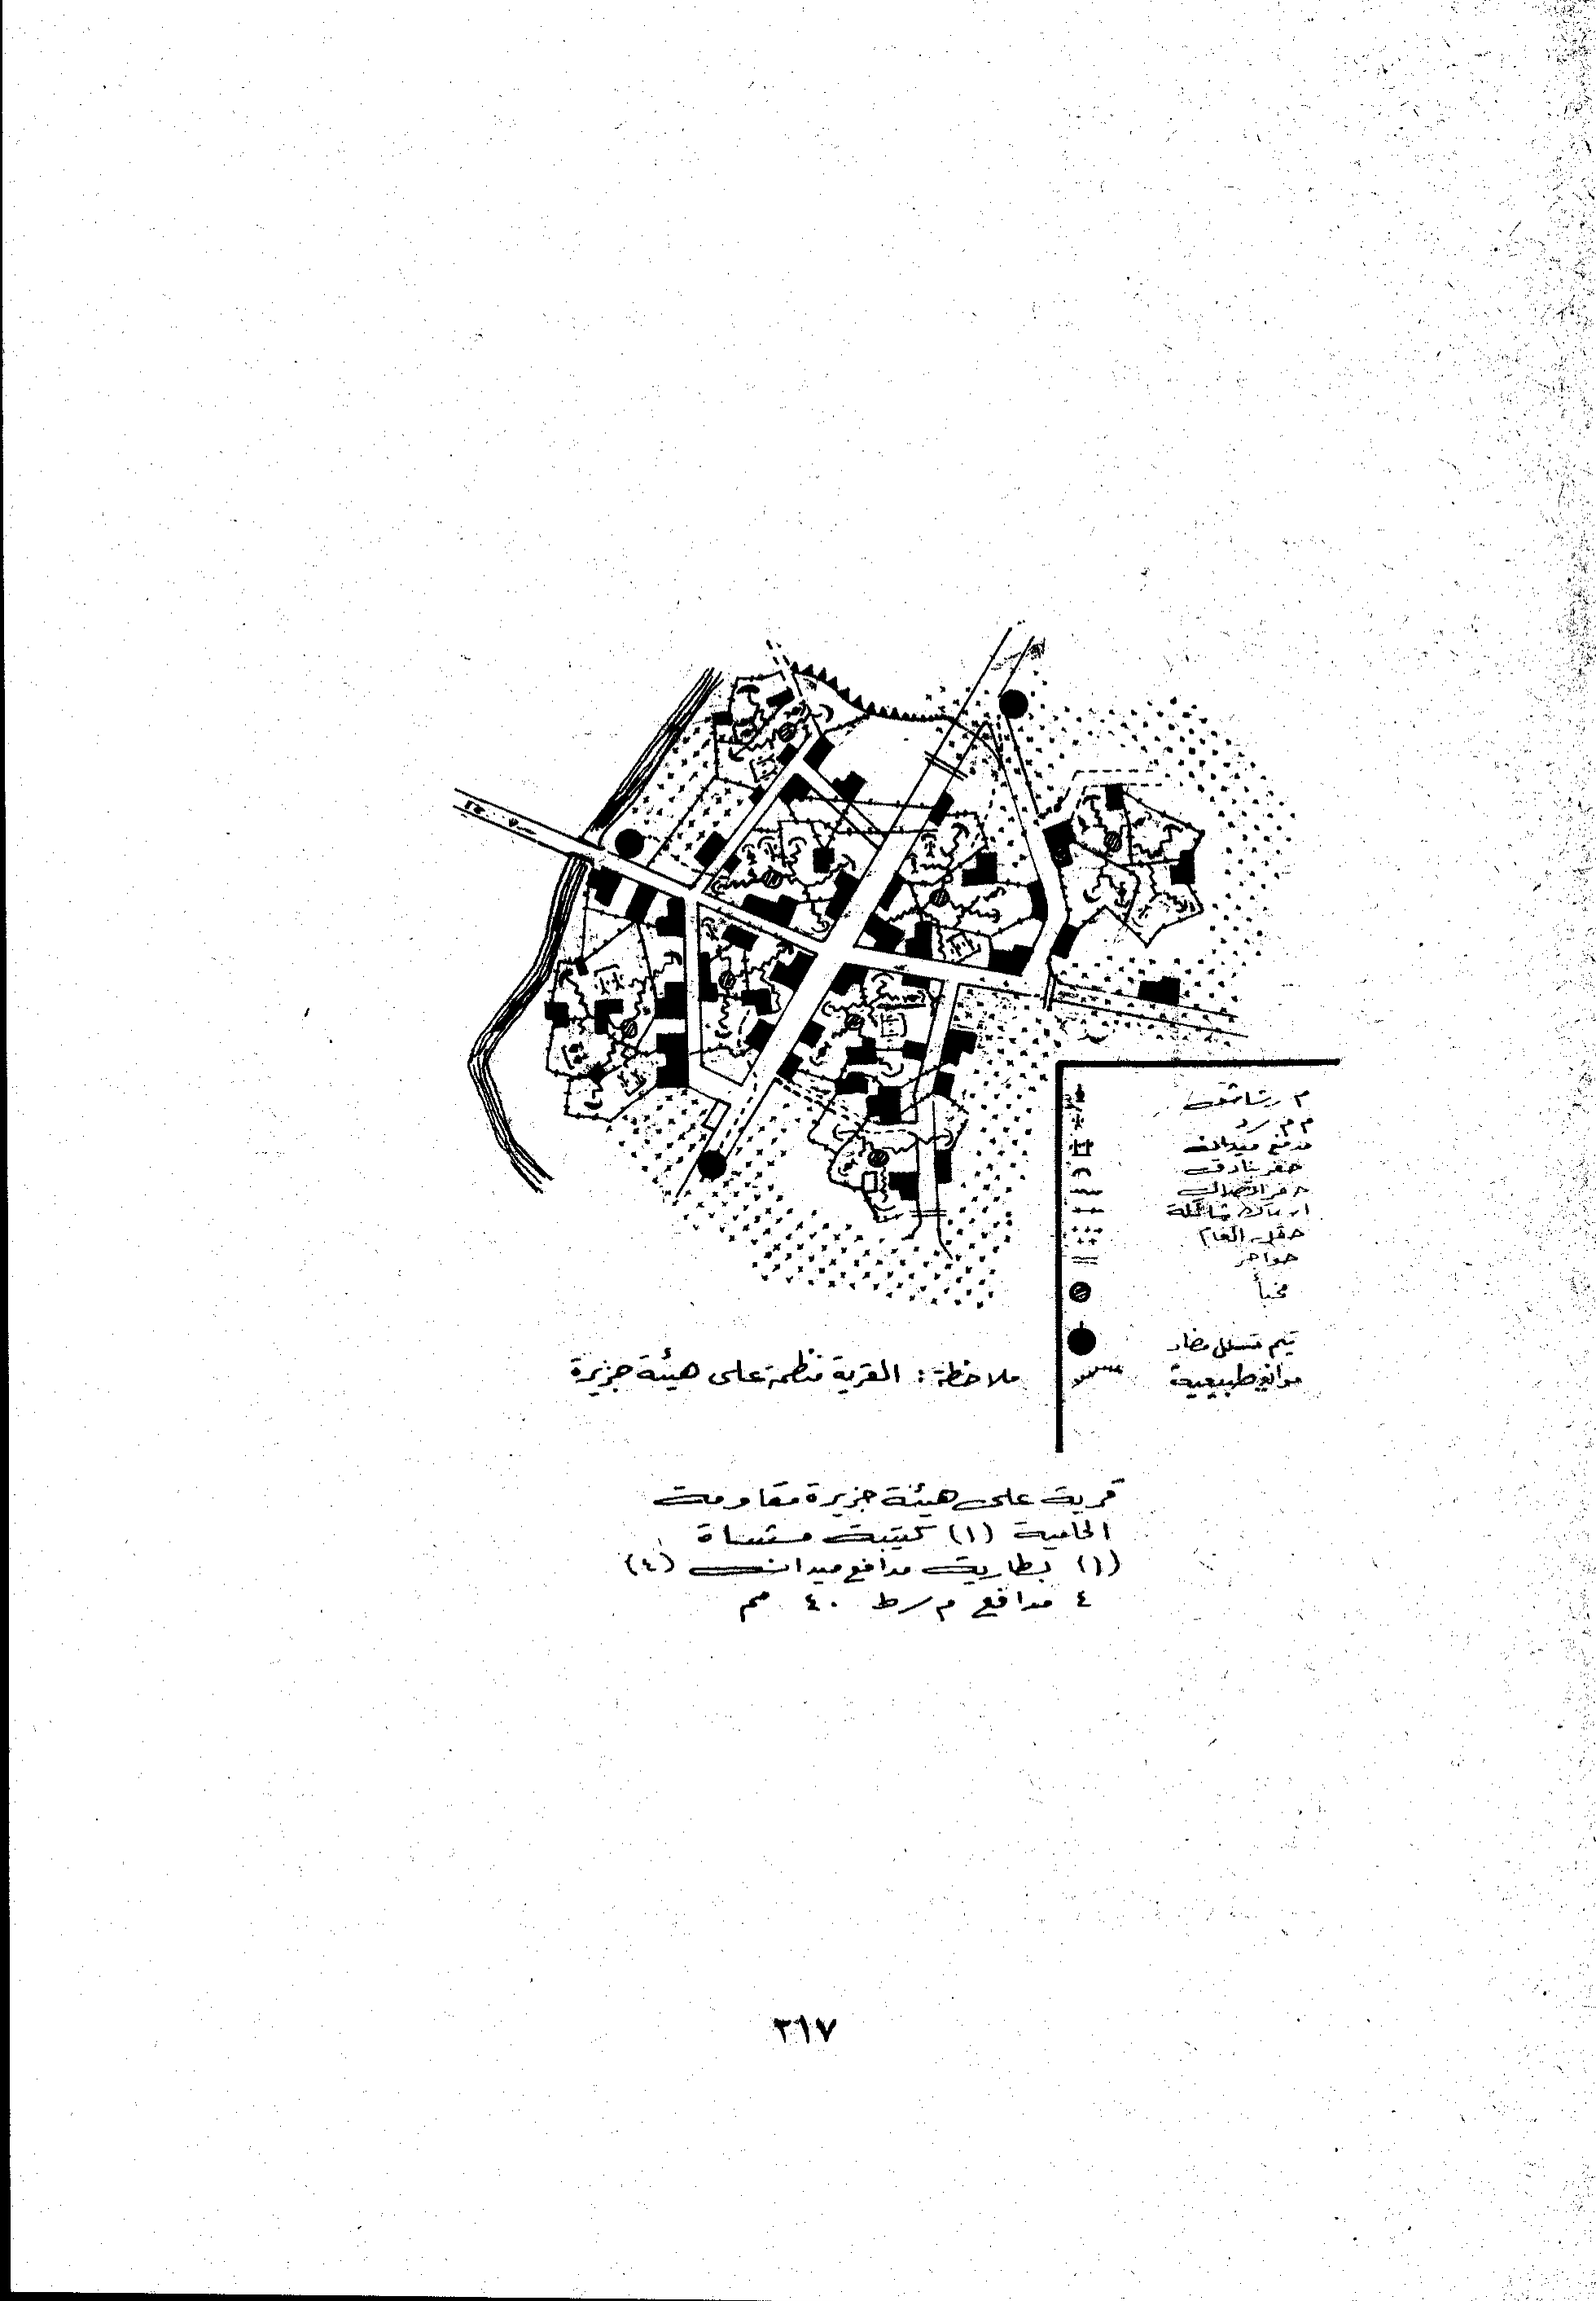 م رشاش
م م / د
مدفع ميدان
حفر بنادق
حفر اتصال
اسلاك شائكة
حقل الغام
حواجز
مخبأ
موانع طبيعية
ملاحظة : القرية منظمة على هيئة جزيرة
قرية على هيئة جزيرة مقاومة
الحامية (١) كتيبة مشاة
(١) بطارية مدافع ميدان (٤)
٤ مدافع م / ط ٤٠ مم
٢١٧